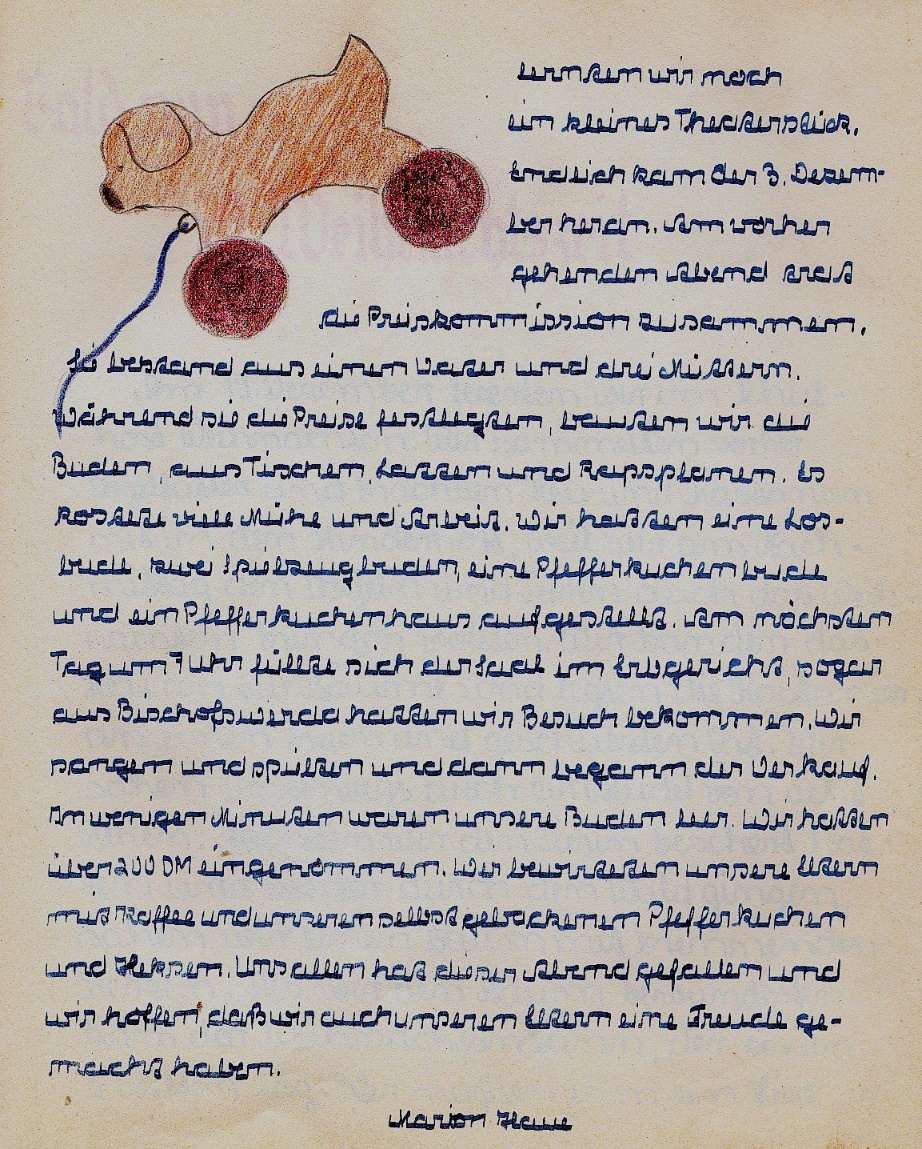 lernten wir noch
ein kleines Theaterstück.
Endlich kam der 3. Dezem-
ber heran. Am vorher
gehenden Abend trat
die Preiskommission zusammen.
Sie bestand aus einem Vater und drei Müttern.
Während sie die Preise festlegten, bauten wir die
Buden, aus Tischen, Latten und Rapsplanen. Es
kostete viele Mühe und Arbeit. Wir hatten eine Los-
bude, zwei Spielzeugbuden, eine Pfefferkuchenbude
und ein Pfefferkuchenhaus aufgestellt. Am nächsten
Tag um 7 Uhr füllte sich der Saal im Erbgericht, sogar
aus Bischofswerda hatten wir Besuch bekommen. Wir
sangen und spielten und dann begann der Verkauf.
In wenigen Minuten waren unsere Buden leer. Wir hatten
über 200 DM eingenommen. Wir bewirteten unsere Eltern
mit Kaffee und unseren selbst gebackenen Pfefferkuchen
und Keksen. Uns allen hat dieser Abend gefallen und
wir hoffen, daß wir auch unseren Eltern eine Freude ge-
macht haben.
Marion